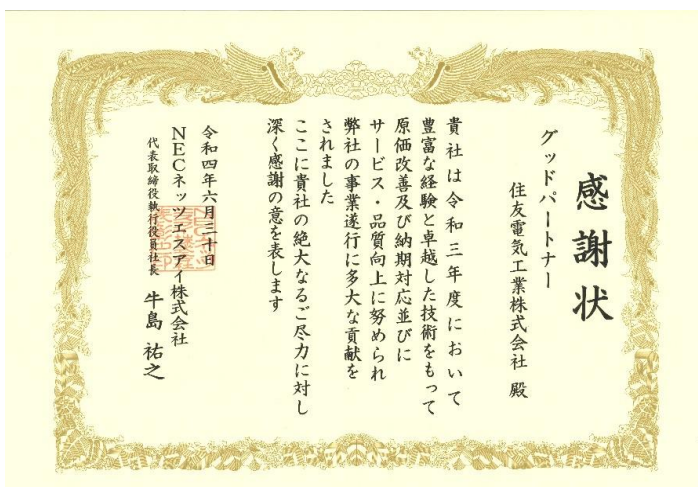 感謝状
グッドパートナー
住友電気工業株式会社 殿
貴社は令和三年度において
豊富な経験と卓越した技術をもって
原価改善及び納期対応並びに
サービス・品質向上に努められ
弊社の事業遂行に多大な貢献を
されました
ここに貴社の絶大なるご尽力に対し
深く感謝の意を表します
令和四年六月三十日
NECネッツエスアイ株式会社
代表取締役執行役員社長 牛島祐之